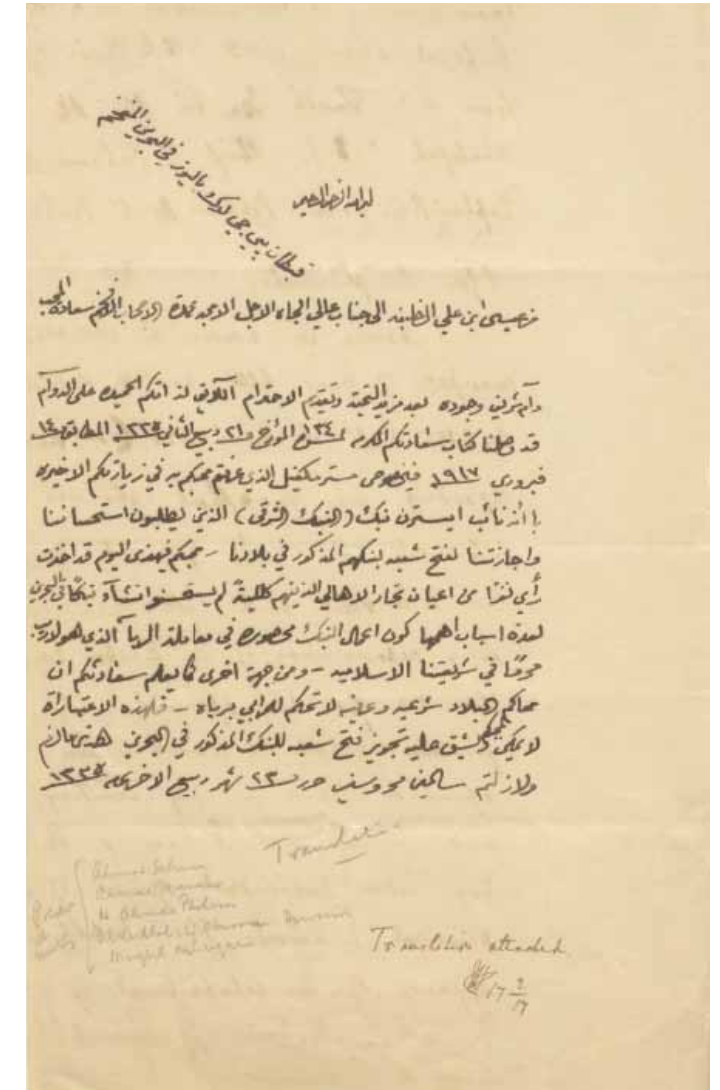 بسم الله الرحمن الرحيم
قبطان بيي جي لوك باليوز في البحرين المفخم
من عيسى ابن علي الخليفه الى جناب عالي الجاه الاجل الامجد عمدة الاصحاب الافخم سعادة المحب
دام شريف وجوده بعد مزيد التحية وتقديم الاحترام اللايق لذاتكم الحميده على الدوام
قد وصلنا كتاب سعادتكم المكرم نمرة ٣٤ المؤرخ ٢١ ربيع الثاني ١٣٣٥ المطابق ١٤
فبروري ١٩١٧ فيخصوص مستر الذي عرفتم محبكم به في زيارتكم الاخيره
بأنه نائب ايسترن بنك (البنك الشرقي) الذي يطلبون استحساننا
واجازتنا لفتح شعبه لبنكهم المذكور في بلادنا – محبكم فيهذي اليوم قد اخذت
رأي نفرًا من اعيان تجار الاهالي الذينهم كلليةً لم يستحسنوا انشاء بنكًا في البحرين
لعدة اسباب اهمها كون اعمال البنك محصوره في معاملة الربا الذي هو لاريب
محرمًا في شريعتنا الاسلاميه – ومن جهة اخرى كما يعلم سعادتكم ان
محاكم البلاد شرعيه وعليه لا تحكم للمرابي برباه – فلهذه الاعتبارات
لا يمكن لمحبكم تجويز فتح شعبه للبنك المذكور في البحرين هذى مالزم
ولازلتم سالمين محروسين حرر ٢٣ شهر ربيع الاخر سنة ١٣٣٥
Translation
Translation attached
17 2/17